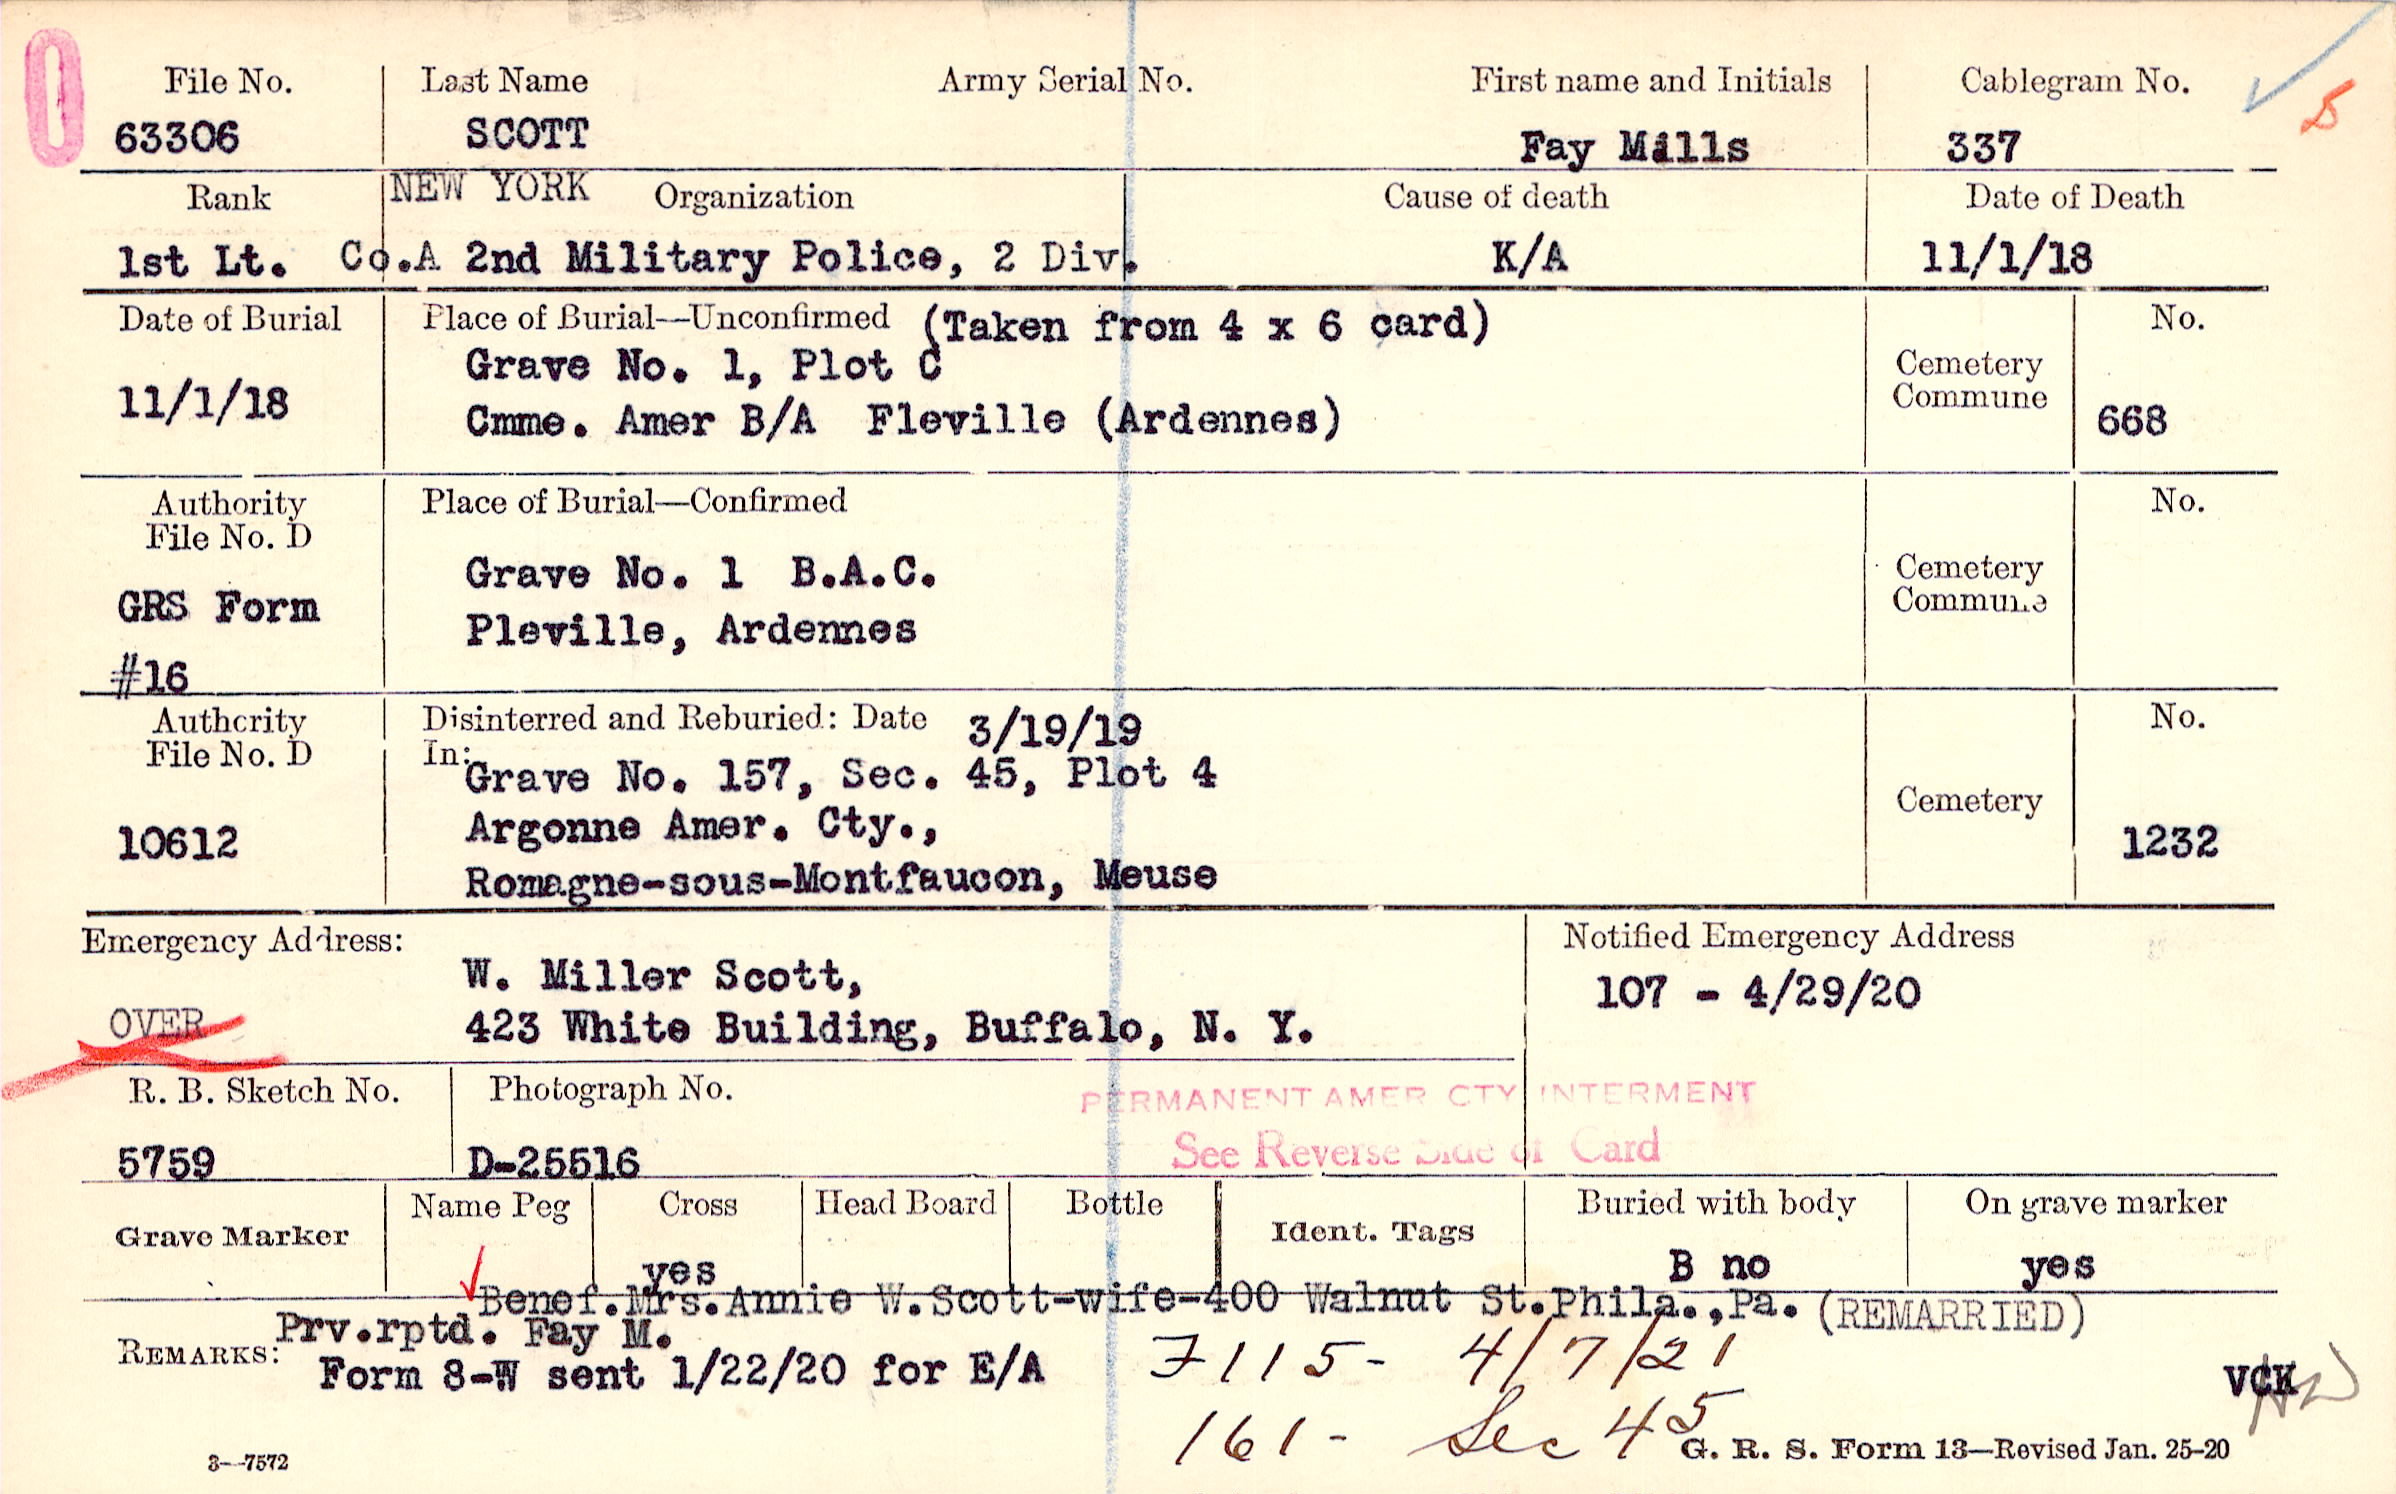 File No. Last Name Army Serial No. First name and Initials Cablegram No.
63306 SCOTT Fay Mills 337
Rank NEW YORK Organization Cause of death Date of Death
1st Lt. Co.A 2nd Military Police, 2 Div. K/A 11/1/18
Date of Burial Place of Burial—Unconfirmed (Taken from 4 x 6 card) No.
Grave No. 1, Plot C Cemetery
11/1/18 Cmme. Amer B/A Fleville (Ardennes) Commune 668
Authority Place of Burial—Confirmed No.
File No. D
Grave No. 1 B.A.C. Cemetery
GRS Form Pleville, Ardennes Commune
#16
Authority Disinterred and Reburied: Date 3/19/19 No.
File No. D In: Grave No. 157, Sec. 45, Plot 4
10612 Argonne Amer. Cty., Cemetery 1232
Romagne-sous-Montfaucon, Meuse
Emergency Address: Notified Emergency Address
W. Miller Scott, 107 - 4/29/20
OVER 423 White Building, Buffalo, N. Y.
R. B. Sketch No. Photograph No. PERMANENT AMER CTY INTERMENT
5759 D-25516 See Reverse Side of Card
Grave Marker Name Peg Cross Head Board Bottle Ident. Tags Buried with body On grave marker
yes B no yes
Benef.Mrs.Annie W.Scott-wife-400 Walnut St.Phila.,Pa. (REMARRIED)
Prv.rptd. Fay M.
REMARKS: Form 8-W sent 1/22/20 for E/A 7115- 4/7/21 VCK
161- Sec 45
3—7572 G. R. S. Form 13—Revised Jan. 25-20